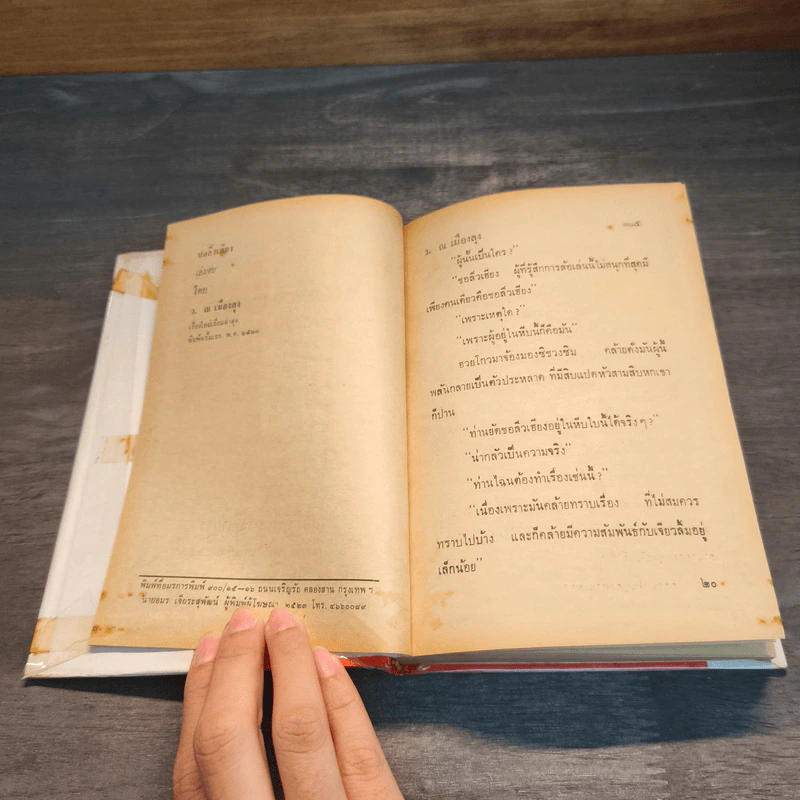 ชอลิ้วเฮียง
โดย
ว. ณ เมืองลุง
พิมพ์ครั้งแรก พ.ศ. ๒๕๒๓
พิมพ์ที่อมรการพิมพ์ ๙๐๐/๑๕—๑๖ ถนนเจริญรัถ คลองสาน กรุงเทพ ฯ
นายอมร เจียระสุพัฒน์ ผู้พิมพ์ผู้โฆษณา ๒๕๒๓ โทร. ๔๖๖๐๐๔๙
ว. ณ เมืองลุง
๓๑๕
“ผู้นั้นเป็นใคร?”
“ชอลิ้วเฮียง ผู้ที่รู้สึกการล้อเล่นนี้ไม่สนุกที่สุดมี
เพียงคนเดียวคือชอลิ้วเฮียง”
“เพราะเหตุใด?”
“เพราะผู้อยู่ในหีบนี้ก็คือมัน”
ฮวยโกวมาจ้องมองชิชวงซิม คล้ายดังมันผู้นี้
พลันกลายเป็นตัวประหลาด ที่มีสิบแปดหัวสามสิบหกเขา
ก็ปาน
“ท่านยัดชอลิ้วเฮียงอยู่ในหีบใบนี้ได้จริงๆ?”
“น่ากลัวเป็นความจริง”
“ท่านไฉนต้องทำเรื่องเช่นนี้?”
“เนื่องเพราะมันคล้ายทราบเรื่อง ที่ไม่สมควร
ทราบไปบ้าง และก็คล้ายมีความสัมพันธ์กับเจียวลิ้มอยู่
เล็กน้อย”
๒๐